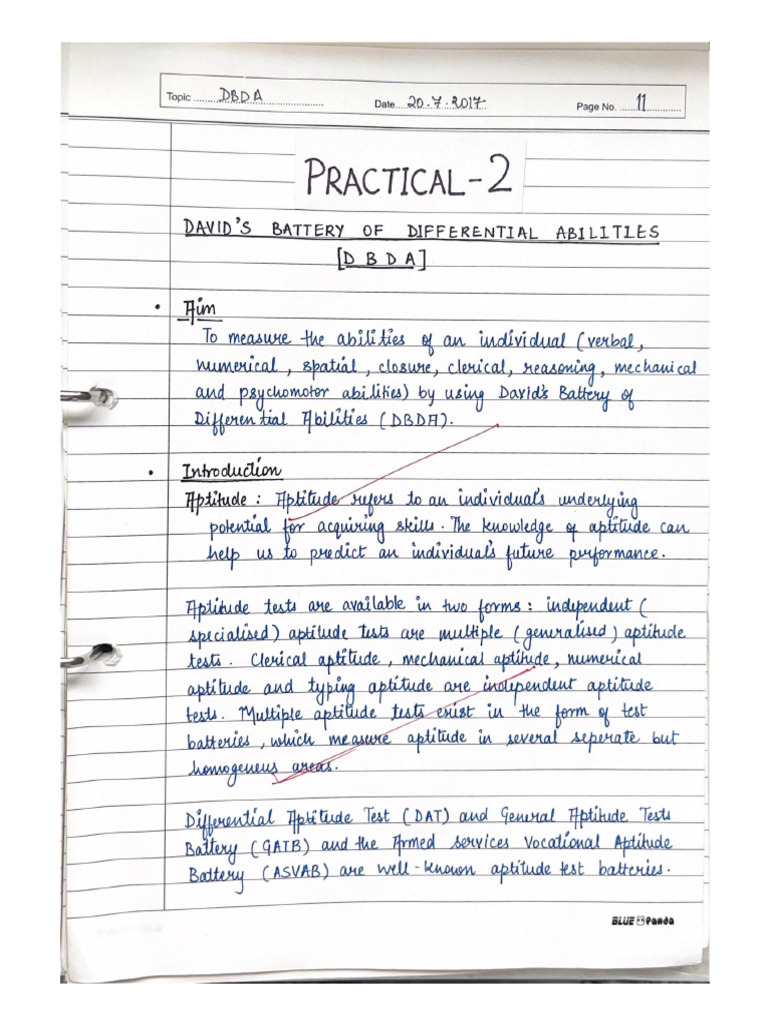 Topic DBDA Date 20.7.2017 Page No. 11
PRACTICAL-2
DAVID'S BATTERY OF DIFFERENTIAL ABILITIES
[DBDA]
• Aim
To measure the abilities of an individual (verbal,
numerical, spatial, closure, clerical, reasoning, mechanical
and psychomotor abilities) by using David's Battery of
Differential Abilities (DBDA).
• Introduction
Aptitude : Aptitude refers to an individual's underlying
potential for acquiring skills. The knowledge of aptitude can
help us to predict an individual's future performance.
Aptitude tests are available in two forms : independent (
specialised) aptitude tests are multiple (generalised) aptitude
tests. Clerical aptitude, mechanical aptitude, numerical
aptitude and typing aptitude are independent aptitude
tests. Multiple aptitude tests exist in the form of test
batteries, which measure aptitude in several seperate but
homogeneus areas.
Differential Aptitude Test (DAT) and General Aptitude Tests
Battery (GATB) and the Armed Services Vocational Aptitude
Battery (ASVAB) are well-known aptitude test batteries.
BLUE Panda